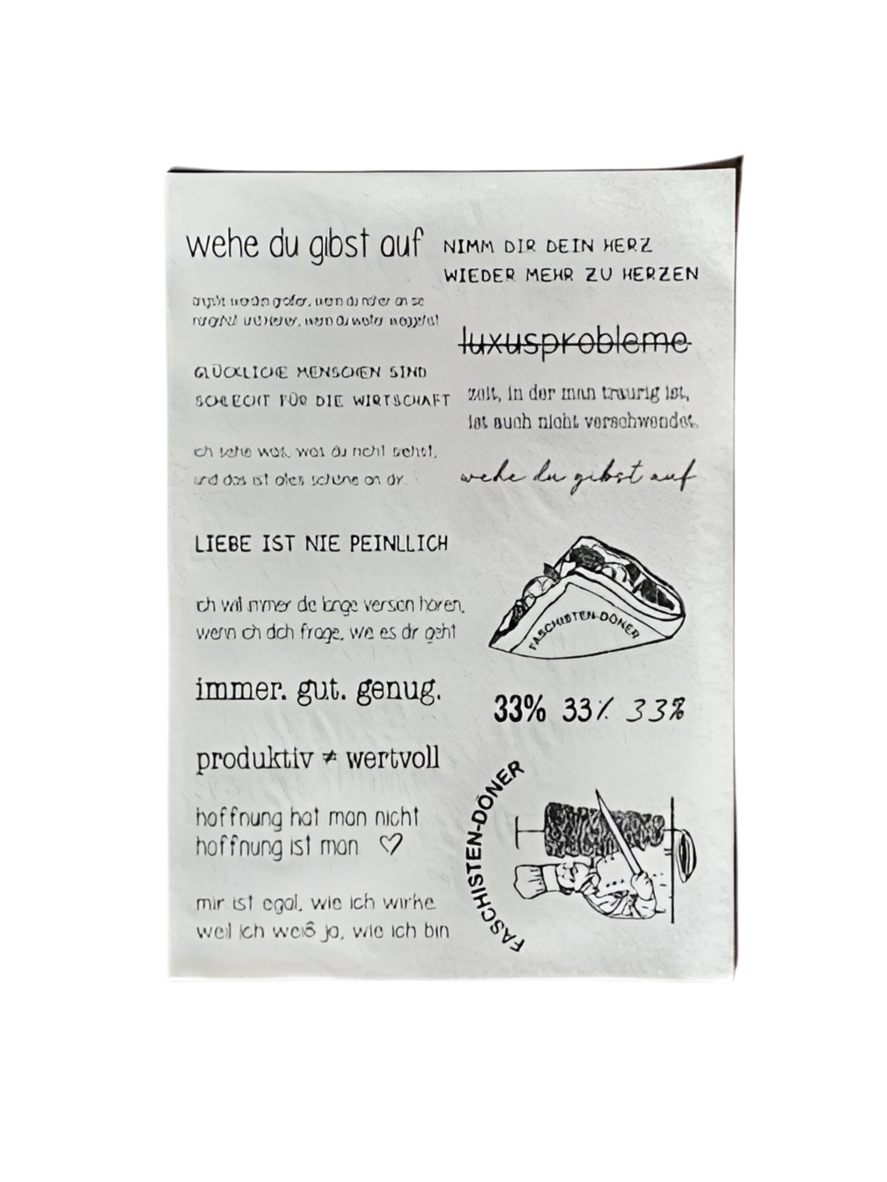 wehe du gibst auf
wenn du weiter
GLÜCKLICHE MENSCHEN SIND
SCHLECHT FÜR DIE WIRTSCHAFT
ich sehe was, was du nicht siehst,
und das ist alles schöne an dir.
LIEBE IST NIE PEINLLICH
ich will immer die lange version hören,
wenn ich dich frage, wie es dir geht
immer. gut. genug.
produktiv ≠ wertvoll
hoffnung hat man nicht
hoffnung ist man ♡
mir ist egal, wie ich wirke
weil ich weiß ja, wie ich bin
NIMM DIR DEIN HERZ
WIEDER MEHR ZU HERZEN
luxusprobleme
zeit, in der man traurig ist,
ist auch nicht verschwendet.
wehe du gibst auf
FASCHISTEN-DÖNER
33% 33% 33%
FASCHISTEN-DÖNER